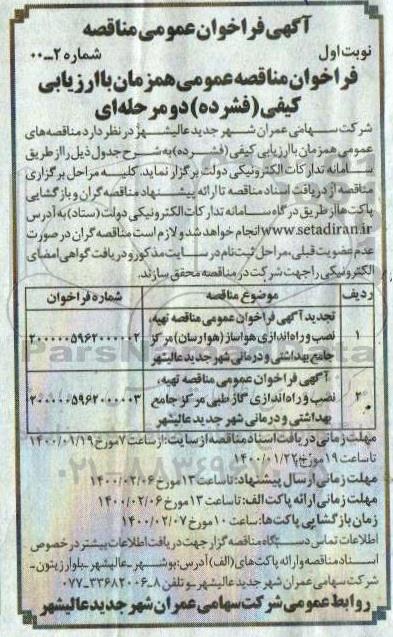 آگهی فراخوان عمومی مناقصه
نوبت اول
شماره ۲-۰۰
فراخوان مناقصه عمومی همزمان با ارزیابی
کیفی (فشرده) دو مرحله‌ای
شرکت سهامی عمران شهر جدید عالیشهر در نظر دارد مناقصه‌های
عمومی همزمان با ارزیابی کیفی (فشرده) به شرح جدول ذیل را از طریق
سامانه تدارکات الکترونیکی دولت برگزار نماید. کلیه مراحل برگزاری
مناقصه از دریافت اسناد مناقصه تا ارائه پیشنهاد مناقصه گران و بازگشایی
پاکت‌ها از طریق درگاه سامانه تدارکات الکترونیکی دولت (ستاد) به آدرس
www.setadiran.ir انجام خواهد شد و لازم است مناقصه گران در صورت
عدم عضویت قبلی، مراحل ثبت‌نام در سایت مذکور و دریافت گواهی امضای
الکترونیکی را جهت شرکت در مناقصه محقق سازند.
ردیف موضوع مناقصه شماره فراخوان
تجدید آگهی فراخوان عمومی مناقصه تهیه،
۱ نصب و راه‌اندازی هواساز (هوارسان) مرکز ۲۰۰۰۰۰۵۹۶۲۰۰۰۰۰۲
جامع بهداشتی و درمانی شهر جدید عالیشهر
آگهی فراخوان عمومی مناقصه تهیه،
۲ نصب و راه‌اندازی گاز طبی مرکز جامع ۲۰۰۰۰۰۵۹۶۲۰۰۰۰۰۳
بهداشتی و درمانی شهر جدید عالیشهر
مهلت زمانی دریافت اسناد مناقصه از سایت: از ساعت ۷ مورخ ۱۴۰۰/۰۱/۱۹
تا ساعت ۱۹ مورخ ۱۴۰۰/۰۱/۲۲
مهلت زمانی ارسال پیشنهاد: تا ساعت ۱۳ مورخ ۱۴۰۰/۰۲/۰۶
مهلت زمانی ارائه پاکت الف: تا ساعت ۱۳ مورخ ۱۴۰۰/۰۲/۰۶
زمان بازگشایی پاکت‌ها: ساعت ۱۰ مورخ ۱۴۰۰/۰۲/۰۷
اطلاعات تماس دستگاه مناقصه گزار جهت دریافت اطلاعات بیشتر در خصوص
اسناد مناقصه و ارائه پاکت‌های (الف) آدرس: بوشهر - عالیشهر - بلوار زیتون -
شرکت سهامی عمران شهر جدید عالیشهر - و تلفن ۸-۰۷۷-۳۳۶۸۲۰۰۶
روابط عمومی شرکت سهامی عمران شهر جدید عالیشهر